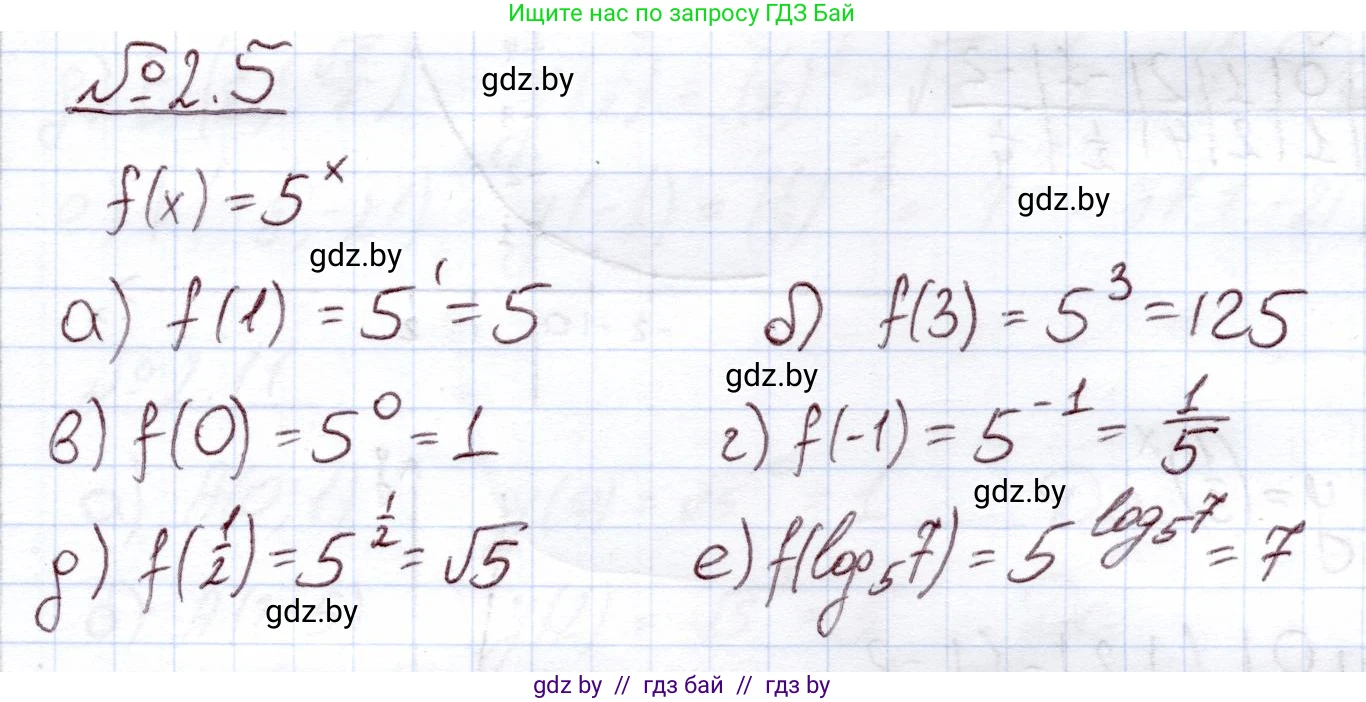 Ищите нас по запросу ГДЗ Бай
№2.5
gdz.by
f(x) = 5^x
gdz.by
gdz.by
а) f(1) = 5^1 = 5
б) f(3) = 5^3 = 125
gdz.by
в) f(0) = 5^0 = 1
г) f(-1) = 5^-1 = 1/5
gdz.by
д) f(1/2) = 5^1/2 = √5
е) f(log₅7) = 5^log₅7 = 7
gdz.by
gdz by // гдз бай // гдз by